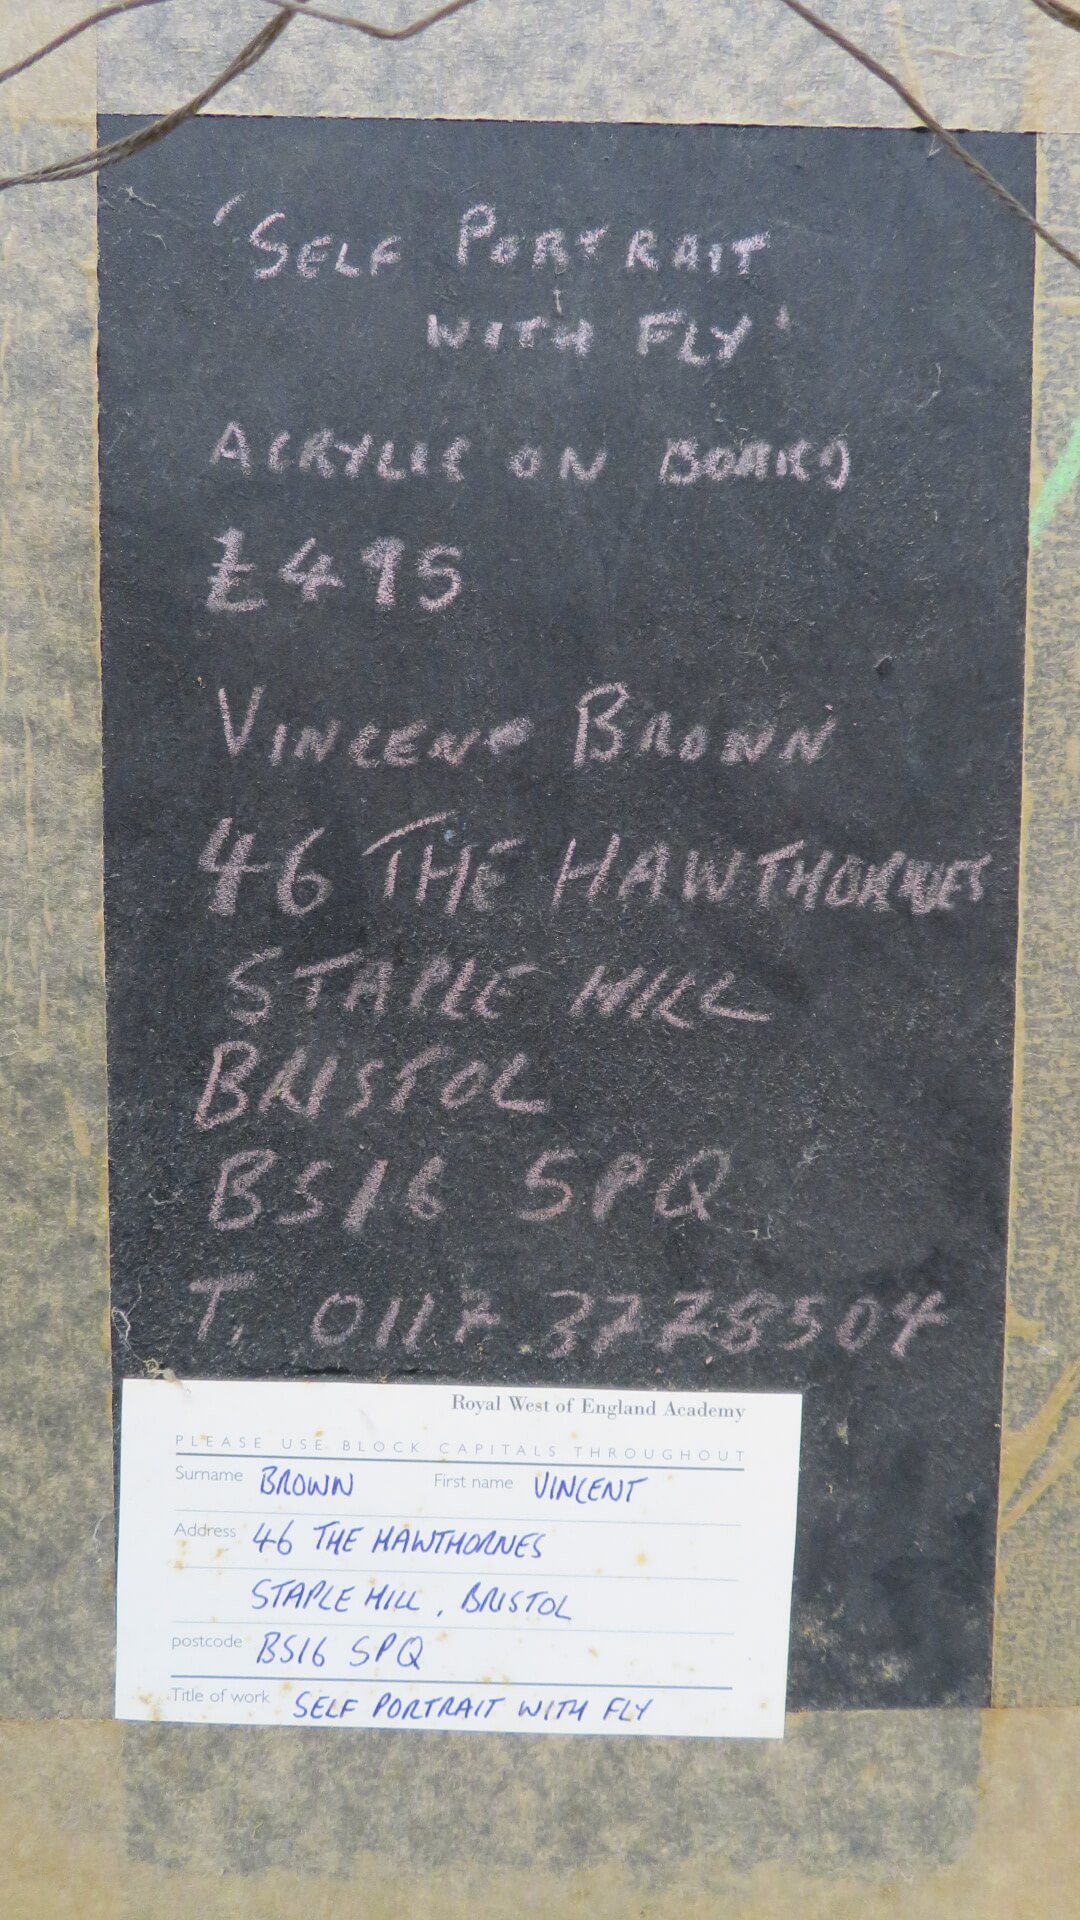 'SELF PORTRAIT
WITH FLY'
ACRYLIC ON BOARD
£495
VINCENT BROWN
46 THE HAWTHORNES
STAPLE HILL
BRISTOL
BS16 5PQ
T. 0117 3778504
Royal West of England Academy
PLEASE USE BLOCK CAPITALS THROUGHOUT
Surname BROWN First name VINCENT
Address 46 THE HAWTHORNES
STAPLE HILL, BRISTOL
postcode BS16 5PQ
Title of work SELF PORTRAIT WITH FLY